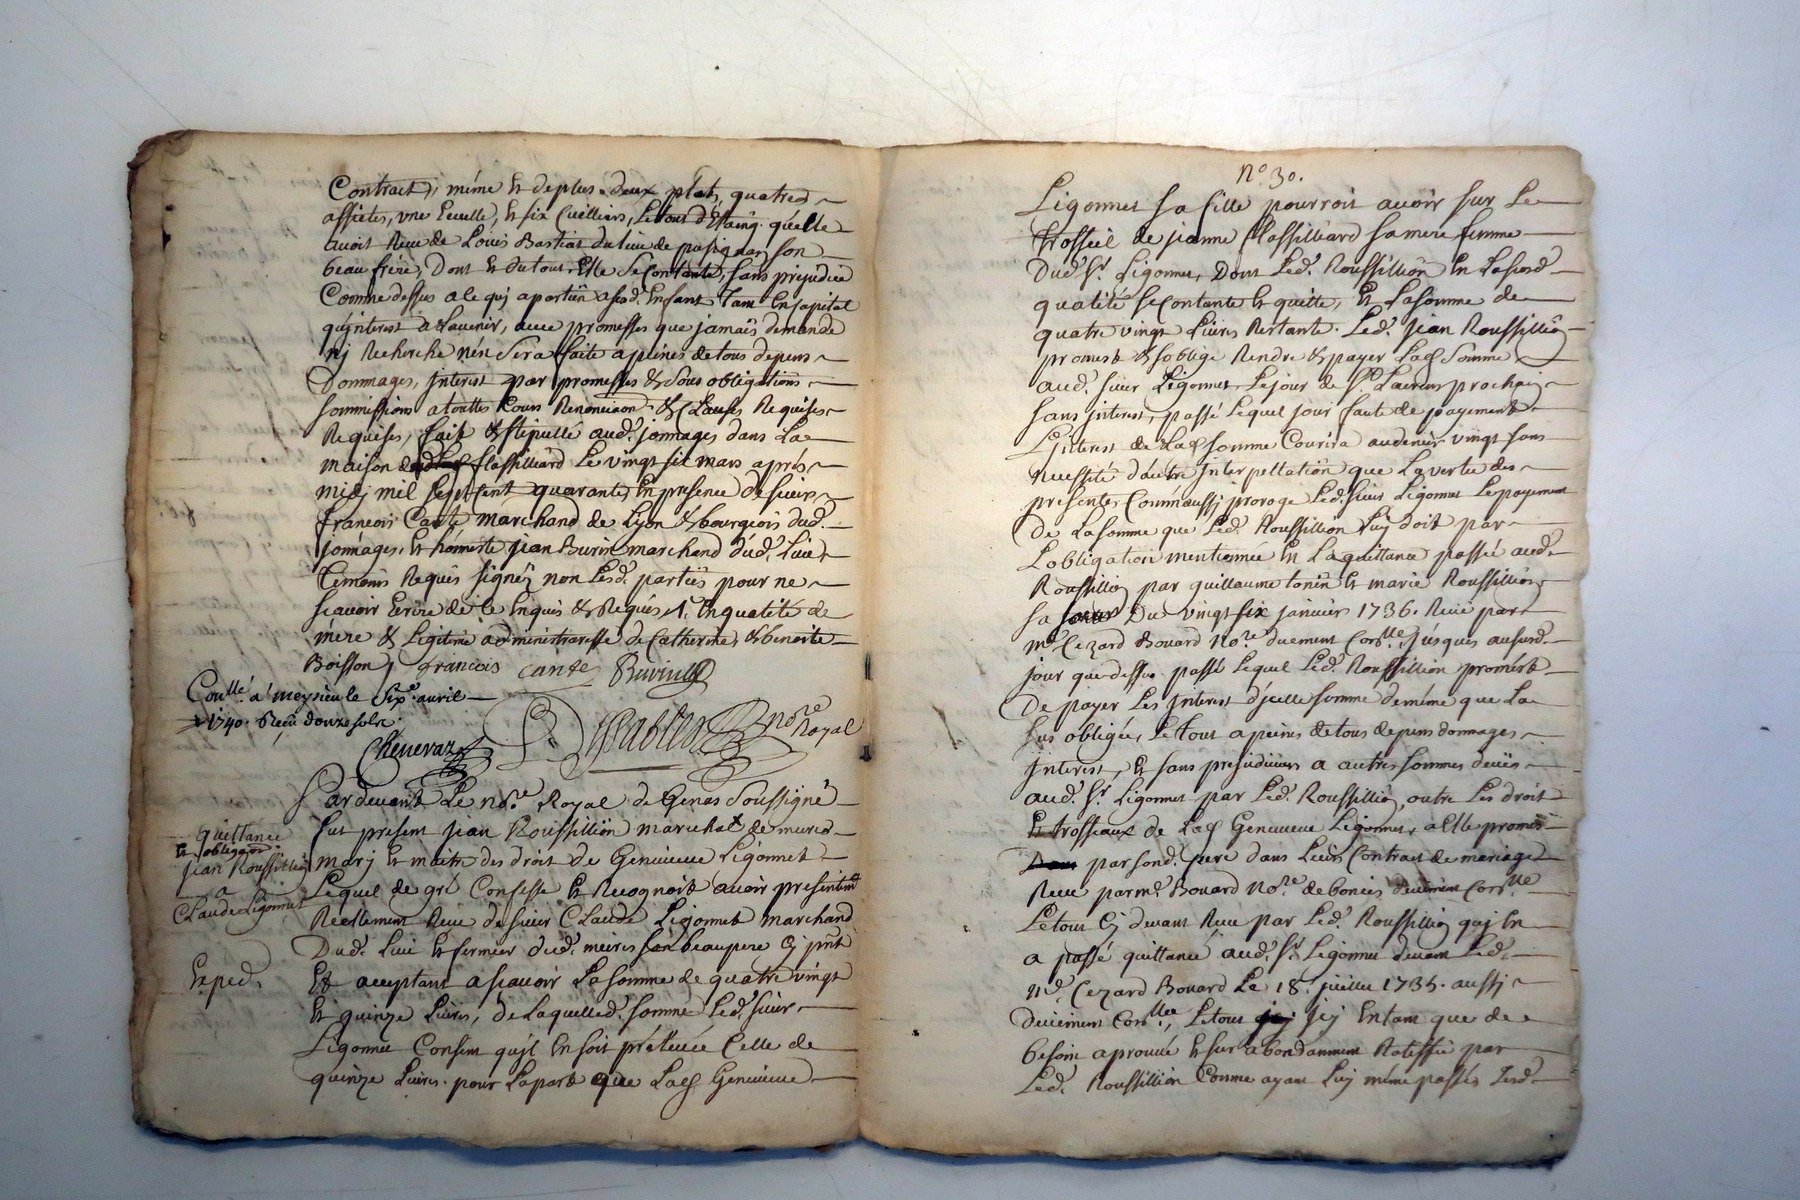 Contract, même et de plus deux plats, quatres
assietes, une Ecuelle, et six Cueilliers, le tout d'Etaing. qu'elle
avoit Reçu de Loüis Bastiat du lieu de pusignan son
beau frere, Dont et du tout Elle se contante, sans prejudice
Comme dessus a le qui apartiin asesd. Enfant Tant En capital
qu'interest a L'avenir, avec promesses que jamais demande
nj Recherche n'en sera faite a peines de tous depens
Dommages, jnterest par promesses & sous obligations
soumissions a touttes Cours Renonciaon & Clauses Requises
Requises, fait & stipullé aud. jonnages dans La
maison flassilliard Le vingt six mars aprés
midj mil sept cent quarante, En presence de sieur
francois Cante marchand de Lyon & bourgeois dud.
jonnages, et honneste jean Buvin marchand dud. Lieu
temoins Requis signéz non Lesd. parties pour ne
scavoir Ecrire de ce Enquis & Requis En qualité de
mere & Legitime administraresse de Catherine, & benoite
Boisson francois cante Buvin
Conllé a meysieu le sixe. avril
1740. Reçu douze sols
Chenevaz nore. Royal
Par devant Le nore. Royal de Genas soussigné
fut present jean Roussilliön marchat de mures
quittance
et obligaon
jean Roussillion
a
Claude Ligonnet
marj et maitre des droit de Genevieve Ligonnet
Lequel de gré Confesse et Recognoit avoir presentemt
Reellement Reçu de sieur Claude Ligonnet marchand
Dud. Lieu et fermier dud. meires son beaupere cj prnt
Exped.
Et acceptant a scavoir La somme de quatre vingt
Et quinze Livres, de Laquelled. somme Led. sieur
Ligonnet Consent qu'jl En soit prélevée Celle de
quinze Livres pour La part que Lad. Genevieve
No. 30.
Ligonnet sa fille pourroit avoir sur Le
trosseil de jeanne flassilliard sa mere femme
Dud. Sr. Ligonnet, Dont Led. Roussilliön En La susd.
qualité se contante et quitte, Et La somme de
quatre vingt Livres Restante. Led. jean Roussilliön
promest & soblige Rendre & payer Lad. somme
aud. sieur Ligonnet Le jour de St. Laurens prochain
sans jnterest, passé Lequel jour faute de payement
L'jnterest de Lad. somme Courira au denier vingt sans
necessité d'autre Interpellatiön que La vertu des
presentes, Comm'aussj proroge Led. sieur Ligonnet Le payement
De La somme que Led. Roussilliön Luy doit par
Lobligation mentionnée En La quittance passée aud.
Roussillion par guillaume tonin et marie Roussillion
sa soeur Du vingt six janvier 1736. Reçue par
me. Cezard Bouard nore. duement Conlle. jusques au susd.
jour que dessus. passé Lequel Led. Roussillion promest
De payer Les jnterest d'jcelle somme de même que La
sus obligée, Le tout a peines de tous depens dommages
jnterest, Et sans prejudicier a autres sommes deües
aud. Sr. Ligonnet par Led. Roussillion, outre Les droit
Et trosseaux de Lad. Genevieve Ligonnet, a Elle promis
par sond. pere dans Leurs Contract de mariage
Reçu par me. Bouard nore. de bonces deüement Conlle
Le tout Cj devant Reçu par Led. Roussillion quj En
a passé quittance aud. Sr. Ligonnet devant Led.
Me. Cezard Bouard Le 18. juillet 1735. aussj
deüement Conllée, Le tout jcj En tant que de
besoin aprouvé Et surabondamment Ratiffié par
Led. Roussillion Comme ayant Luy même passés Lesd.